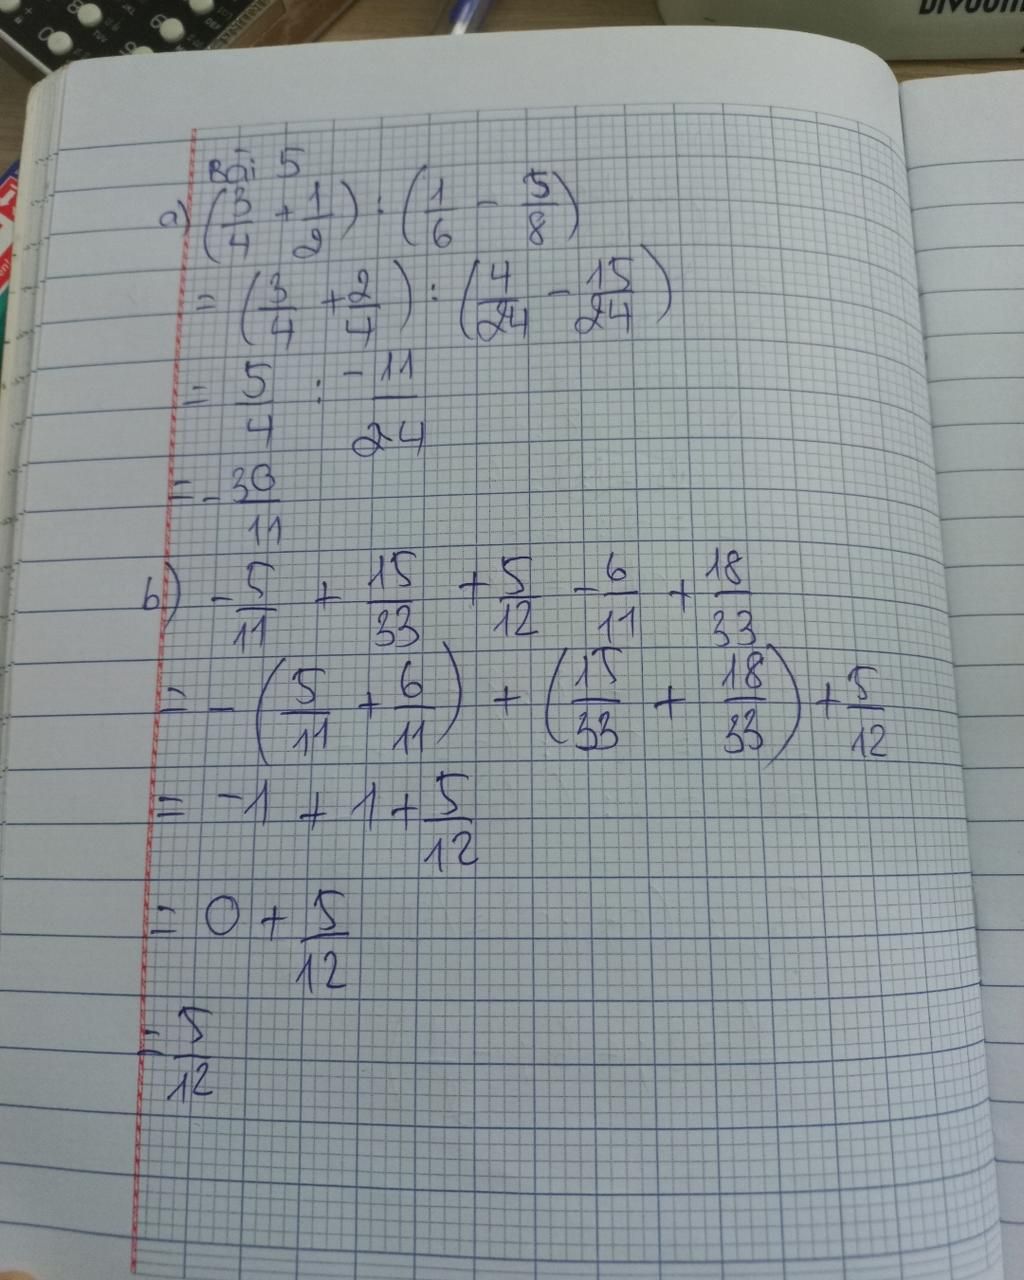 Bài 5
a) (3/4 + 1/2) : (1/6 - 5/8)
= (3/4 + 2/4) : (4/24 - 15/24)
= 5/4 : -11/24
= -30/11
b) -5/11 + 15/33 + 5/12 - 6/11 + 18/33
= -(5/11 + 6/11) + (15/33 + 18/33) + 5/12
= -1 + 1 + 5/12
= 0 + 5/12
= 5/12